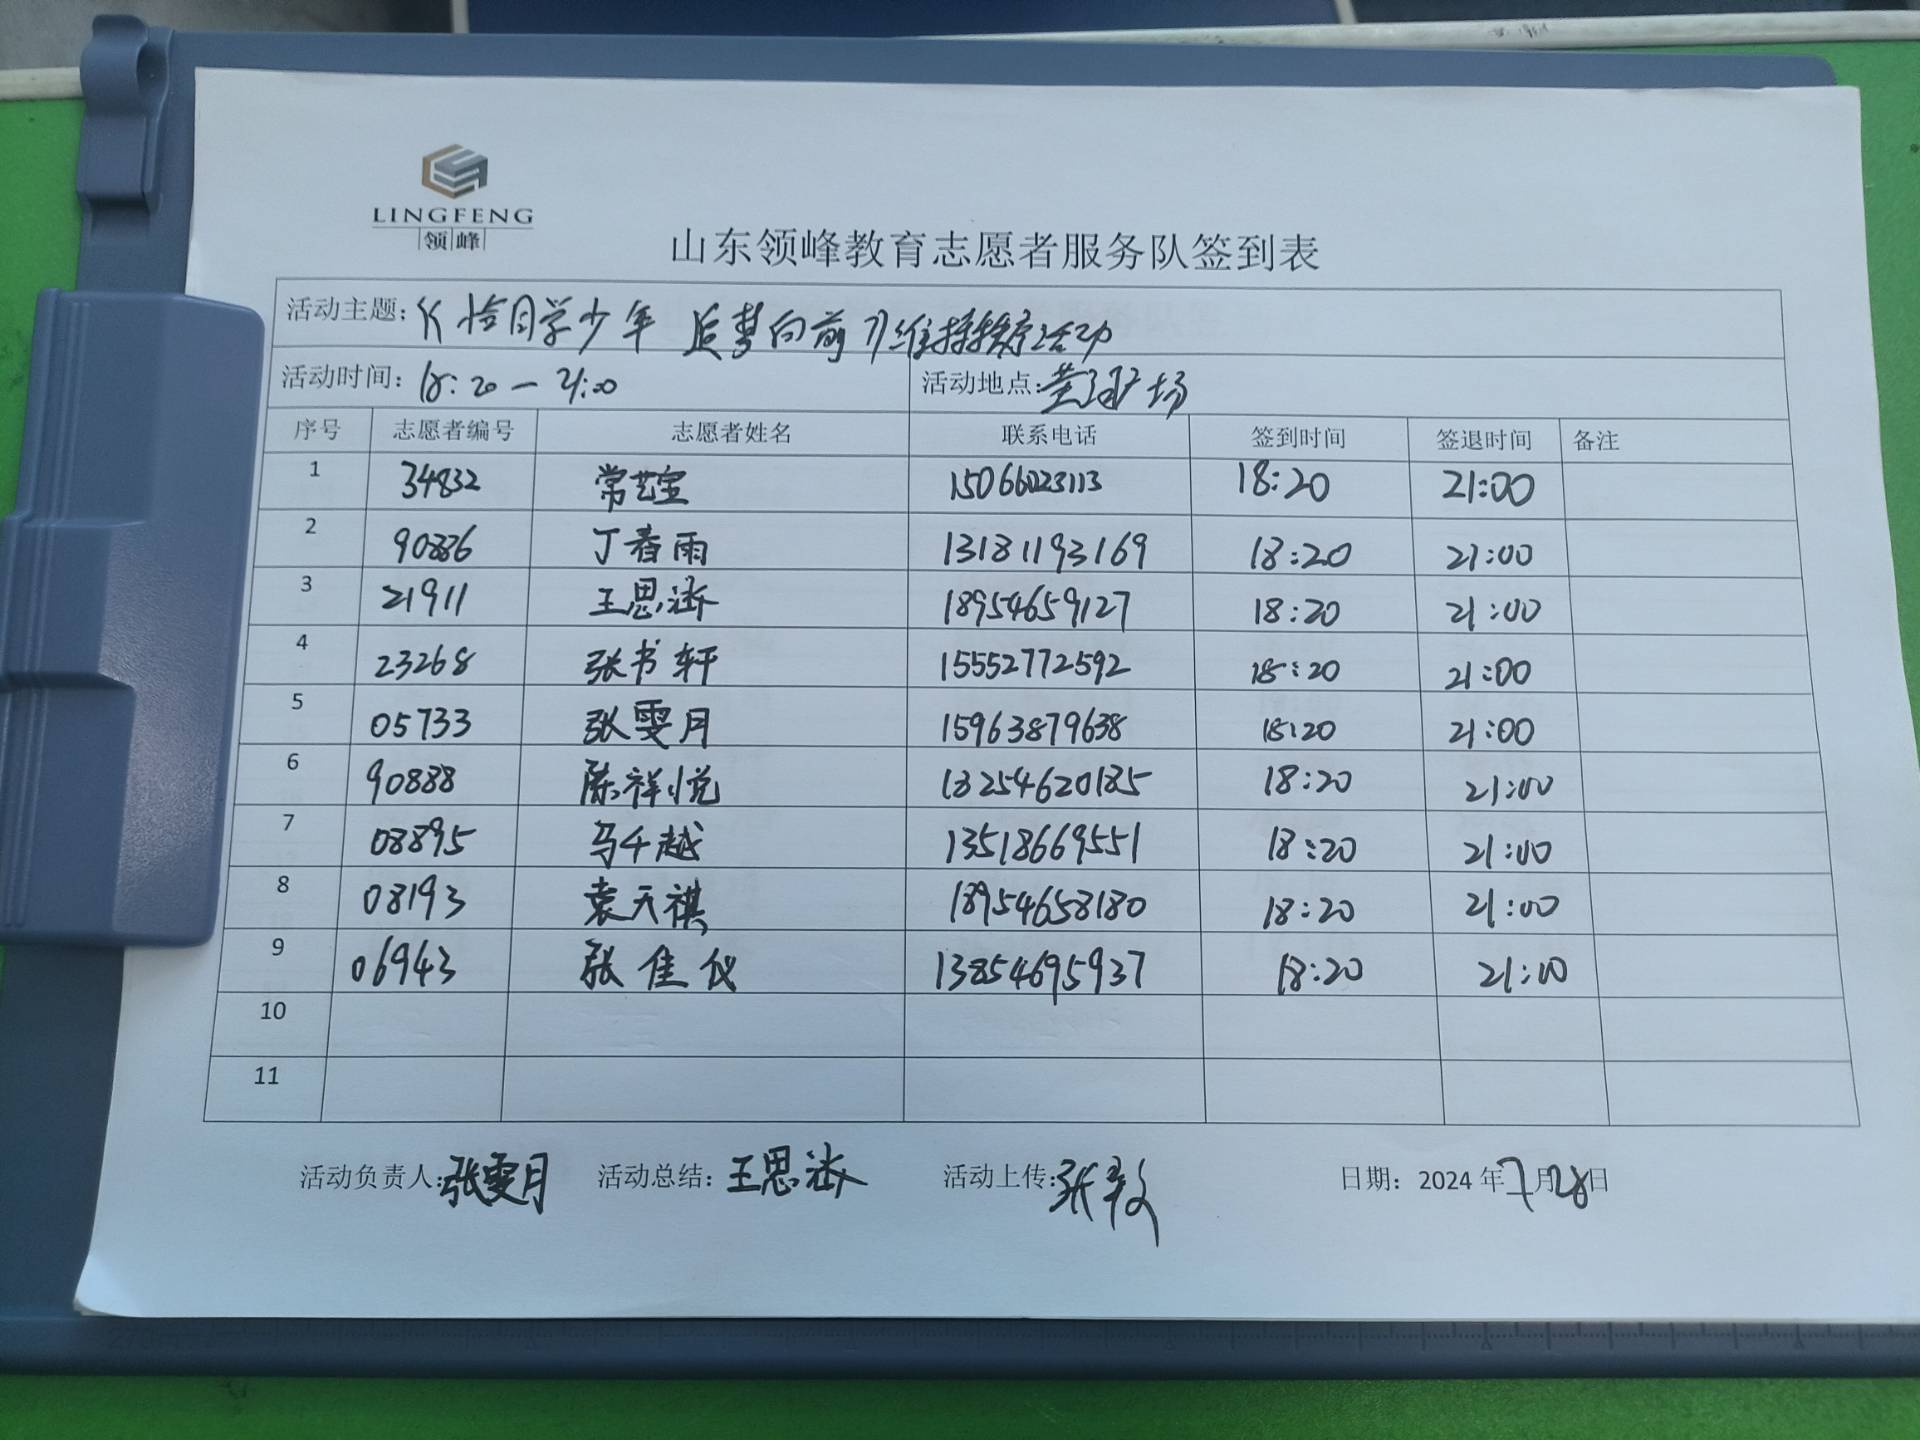 LINGFENG
领峰
山东领峰教育志愿者服务队签到表
活动主题：《恰同学少年 追梦向前》维持秩序活动
活动时间：18:20—21:00 活动地点：广场
序号 志愿者编号 志愿者姓名 联系电话 签到时间 签退时间 备注
1 34832 常艺宝 15066023113 18:20 21:00
2 90886 丁春雨 13181193169 18:20 21:00
3 21911 王思涵 18954659127 18:20 21:00
4 23268 张书轩 15552772592 18:20 21:00
5 05733 张雯月 15963879638 18:20 21:00
6 90888 陈祥悦 13254620185 18:20 21:00
7 08895 马千越 13518669551 18:20 21:00
8 08193 袁天祺 18954658180 18:20 21:00
9 06943 张佳仪 13854695937 18:20 21:00
10
11
活动负责人：张雯月 活动总结：王思涵 活动上传：张 日期：2024年7月28日